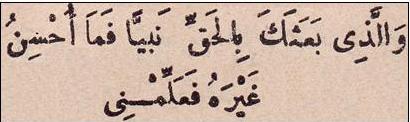 وَالَّذِى بَعَثَكَ بِالحَقِّ نَبيًّا فَمَا أُحْسِنُ
غَيْرَهُ فَعَلِّمْنِى